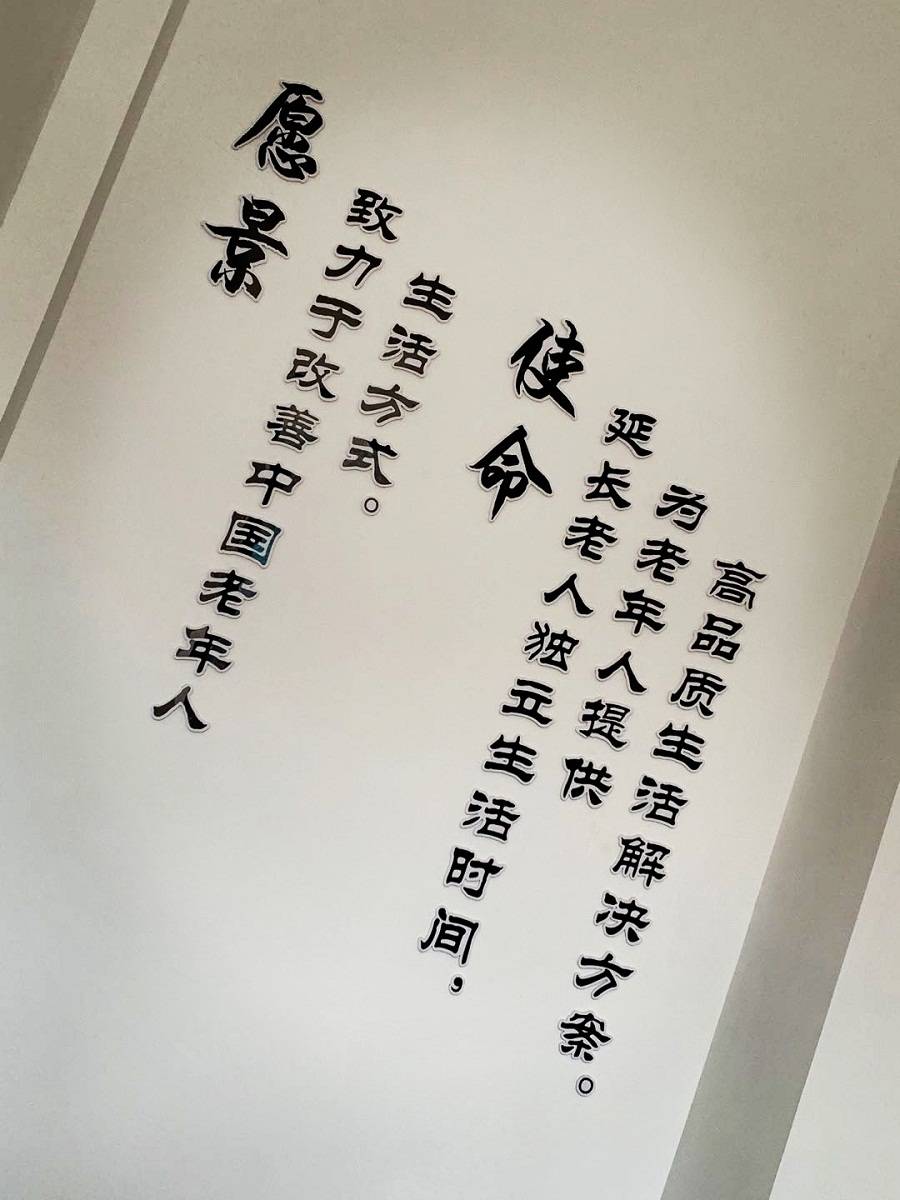 愿景
致力于改善中国老年人
生活方式。
使命
延长老人独立生活时间，
为老年人提供
高品质生活解决方案。